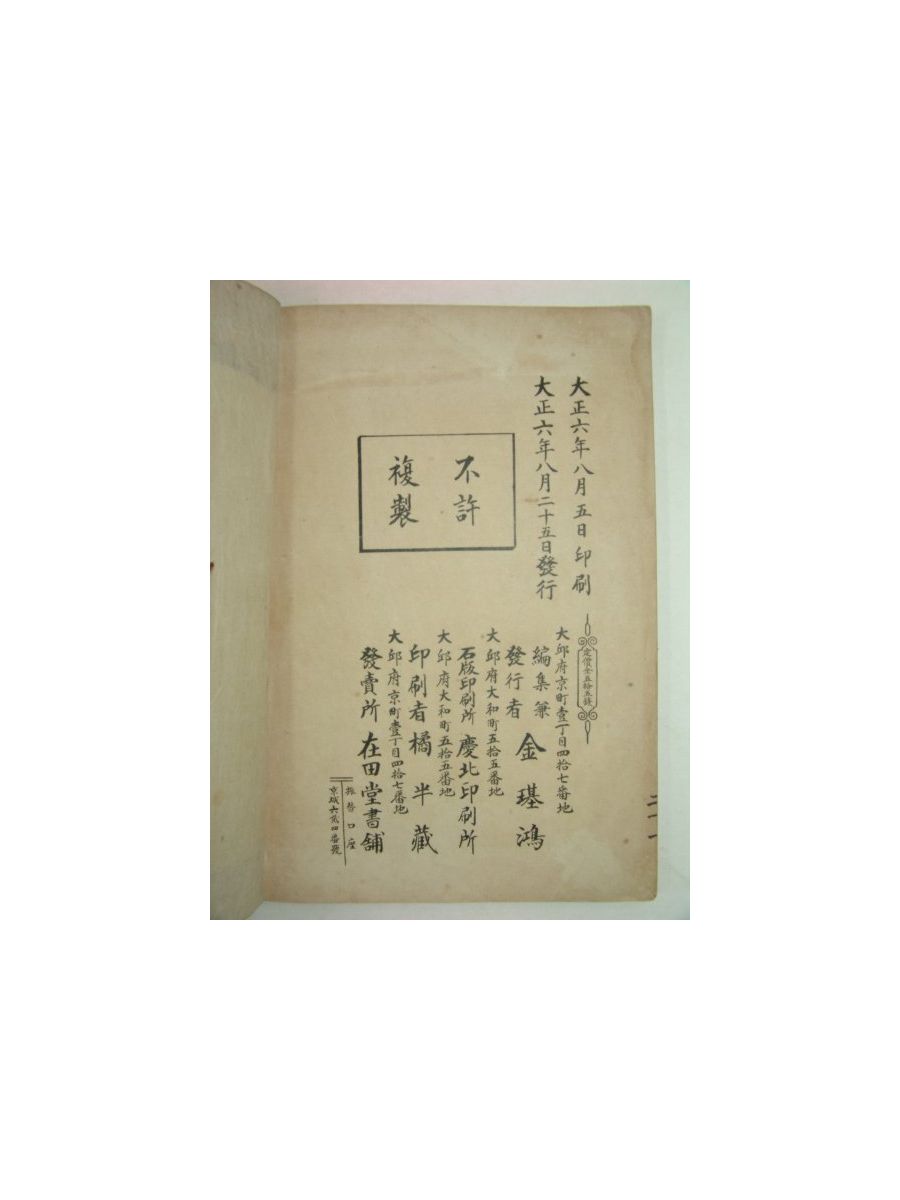 大正六年八月五日印刷
大正六年八月二十五日發行
不許
複製
定價金五拾五錢
大邱府京町壹丁目四拾七番地
編集兼
發行者 金璂鴻
大邱府大和町五拾五番地
石版印刷所 慶北印刷所
大邱府大和町五拾五番地
印刷者 橘半藏
大邱府京町壹丁目四拾七番地
發賣所 在田堂書舖
振替口座
京城六第四番號